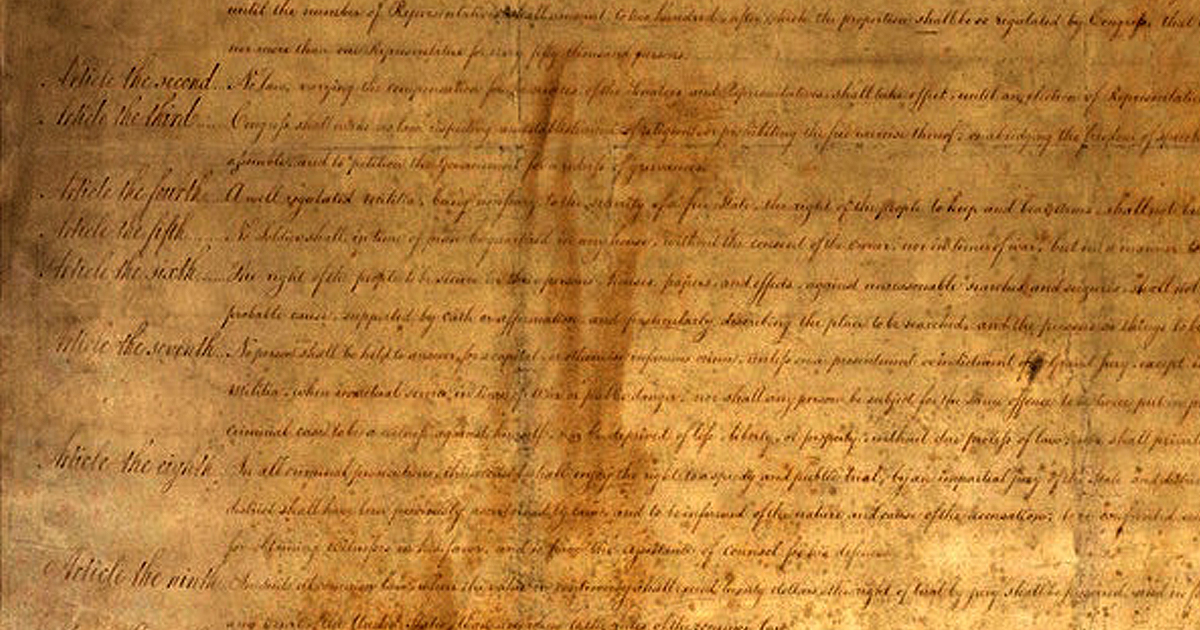 until the number of Representatives shall amount to two hundred, after which the proportion shall be so regulated by Congress, that
nor more than one Representative for every fifty thousand persons.
Article the second... No law, varying the compensation for the services of the Senators and Representatives, shall take effect, until an election of Representatives
Article the third...... Congress shall make no law respecting an establishment of religion, or prohibiting the free exercise thereof; or abridging the freedom of speech
assemble, and to petition the Government for a redress of grievances.
Article the fourth.. A well regulated militia, being necessary to the security of a free State, the right of the people to keep and bear arms, shall not be
Article the fifth........ No Soldier shall, in time of peace be quartered in any house, without the consent of the owner, nor in time of war, but in a manner to
Article the sixth...... The right of the people to be secure in their persons, houses, papers, and effects, against unreasonable searches and seizures, shall not
probable cause, supported by oath or affirmation, and particularly describing the place to be searched, and the persons or things to be
Article the seventh.. No person shall be held to answer for a capital, or otherwise infamous crime, unless on a presentment or indictment of a Grand Jury, except
Militia, when in actual service in time of War or public danger; nor shall any person be subject for the same offence to be twice put in
criminal case to be a witness against himself, nor be deprived of life, liberty, or property, without due process of law; nor shall private
Article the eighth. In all criminal prosecutions, the accused shall enjoy the right to a speedy and public trial, by an impartial jury of the State and district
district shall have been previously ascertained by law, and to be informed of the nature and cause of the accusation; to be confronted with
for obtaining witnesses in his favor, and to have the assistance of counsel for his defence.
Article the ninth.. In suits at common law, where the value in controversy shall exceed twenty dollars, the right of trial by jury shall be preserved, and no
any Court of the United States, than according to the rules of the common law.